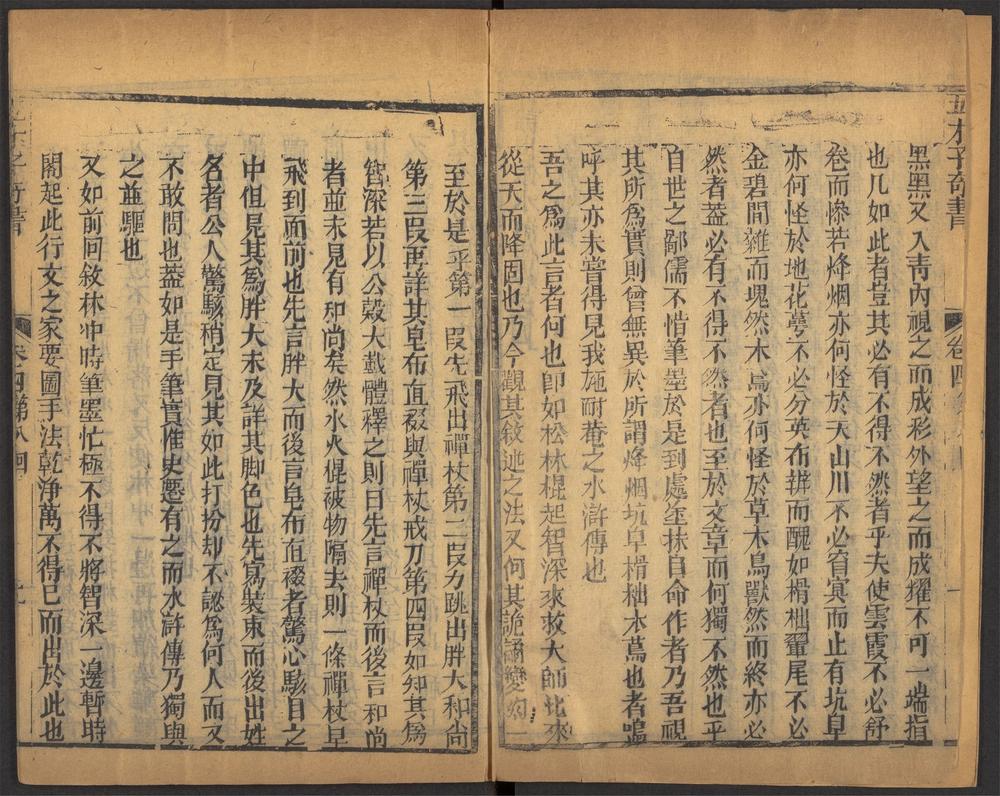 五才子奇書
卷四
黑黑又入靑內視之而成彩外望之而成耀不可一端指
也凡如此者豈其必有不得不然者乎夫使雲霞不必舒
卷而慘若烽烟亦何怪於天山川不必窅冥而止有坑阜
亦何怪於地花萼不必分英布瓣而醜如榾柮翬尾不必
金碧間雜而塊然木鳶亦何怪於草木鳥獸然而終亦必
然者蓋必有不得不然者也至於文章而何獨不然也乎
自世之鄙儒不惜筆墨於是到處塗抹自命作者乃吾視
其所爲實則曾無異於所謂烽烟坑阜榾柮木鳶也者嗚
呼其亦未嘗得見我施耐菴之水滸傳也
吾之爲此言者何也卽如松林棍起智深來救大師此來
從天而降固也乃今觀其敘述之法又何其詭譎變幻一
至於是乎第一段先飛出禪杖第二段方跳出胖大和尙
第三段再詳其皂布直裰與禪杖戒刀第四段始知其爲
智深若以公穀大戴體釋之則曰先言禪杖而後言和尙
者並未見有和尙矣然水火棍被物隔去則一條禪杖早
飛到面前也先言胖大而後言皂布直裰者驚心駭目之
中但見其爲胖大未及詳其脚色也先寫裝束而後出姓
名者公人驚駭稍定見其如此打扮却不認爲何人而又
不敢問也蓋如是手筆實惟史遷有之而水滸傳乃獨與
之並驅也
又如前回敘林冲時筆墨忙極不得不將智深一邊暫時
閣起此行文之家要圖手法乾淨萬不得已而出於此也
才子奇書
卷四第八回